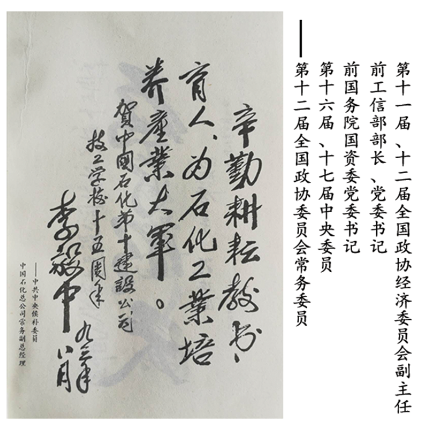 第十一届、十二届全国政协经济委员会副主任
前工信部部长、党委书记
前国务院国资委党委书记
第十六届、十七届中央委员
——第十二届全国政协委员会常务委员
辛勤耕耘教书、
育人、为石化工業培
养產業大軍。
贺中國石化第十建設公司
技工学校十五周年
李毅中
九三年
八月
——中共中央候补委员
中国石化总公司常务副总经理